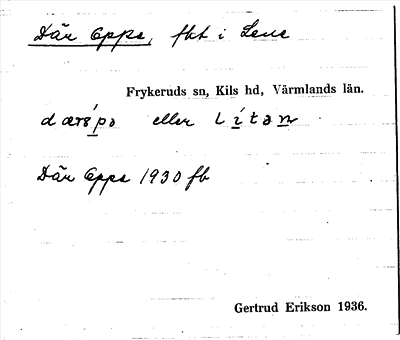 Där Oppe, fht i Lene
Frykeruds sn, Kils hd, Värmlands län.
eller
Där Oppe 1930 fb
Gertrud Erikson 1936.